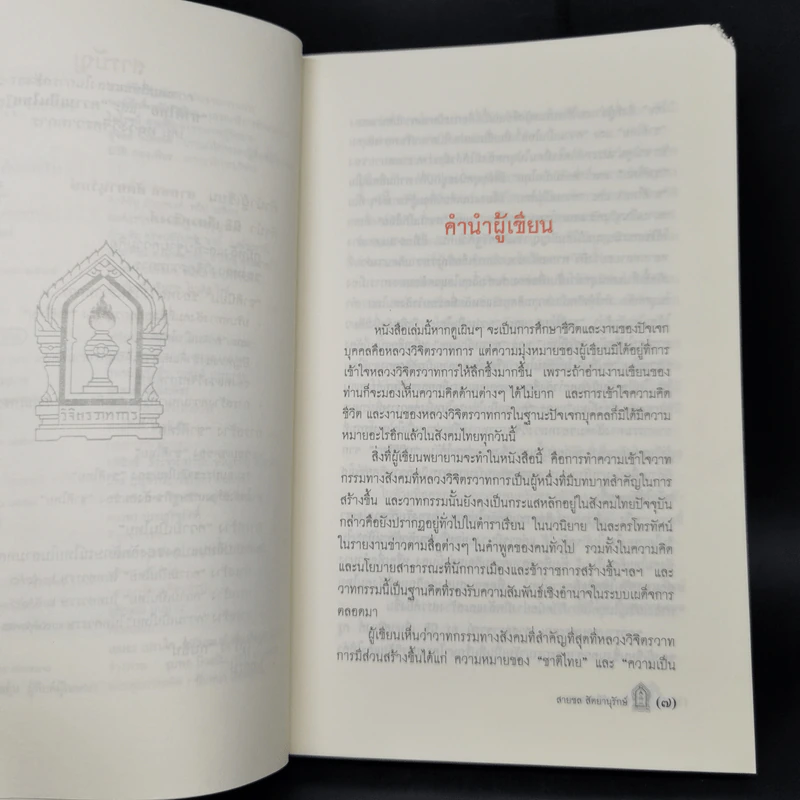 วิจิตรวาทการ
คำนำผู้เขียน
หนังสือเล่มนี้หากดูเผินๆ จะเป็นการศึกษาชีวิตและงานของปัจเจก
บุคคลคือหลวงวิจิตรวาทการ แต่ความมุ่งหมายของผู้เขียนมิได้อยู่ที่การ
เข้าใจหลวงวิจิตรวาทการให้ลึกซึ้งมากขึ้น เพราะถ้าอ่านงานเขียนของ
ท่านก็จะมองเห็นความคิดด้านต่างๆ ได้ไม่ยาก และการเข้าใจความคิด
ชีวิต และงานของหลวงวิจิตรวาทการในฐานะปัจเจกบุคคลก็มิได้มีความ
หมายอะไรอีกแล้วในสังคมไทยทุกวันนี้
สิ่งที่ผู้เขียนพยายามจะทำในหนังสือนี้ คือการทำความเข้าใจวาท
กรรมทางสังคมที่หลวงวิจิตรวาทการเป็นผู้หนึ่งที่มีบทบาทสำคัญในการ
สร้างขึ้น และวาทกรรมนั้นยังคงเป็นกระแสหลักอยู่ในสังคมไทยปัจจุบัน
กล่าวคือยังปรากฏอยู่ทั่วไปในตำราเรียน ในนวนิยาย ในละครโทรทัศน์
ในรายงานข่าวตามสื่อต่างๆ ในคำพูดของคนทั่วไป รวมทั้งในความคิด
และนโยบายสาธารณะที่นักการเมืองและข้าราชการสร้างขึ้นฯลฯ และ
วาทกรรมนี้เป็นฐานคิดที่รองรับความสัมพันธ์เชิงอำนาจในระบบเผด็จการ
ตลอดมา
ผู้เขียนเห็นว่าวาทกรรมทางสังคมที่สำคัญที่สุดที่หลวงวิจิตรวาท
การมีส่วนสร้างขึ้นได้แก่ ความหมายของ "ชาติไทย" และ "ความเป็น
สายชล สัตยานุรักษ์ (๗)